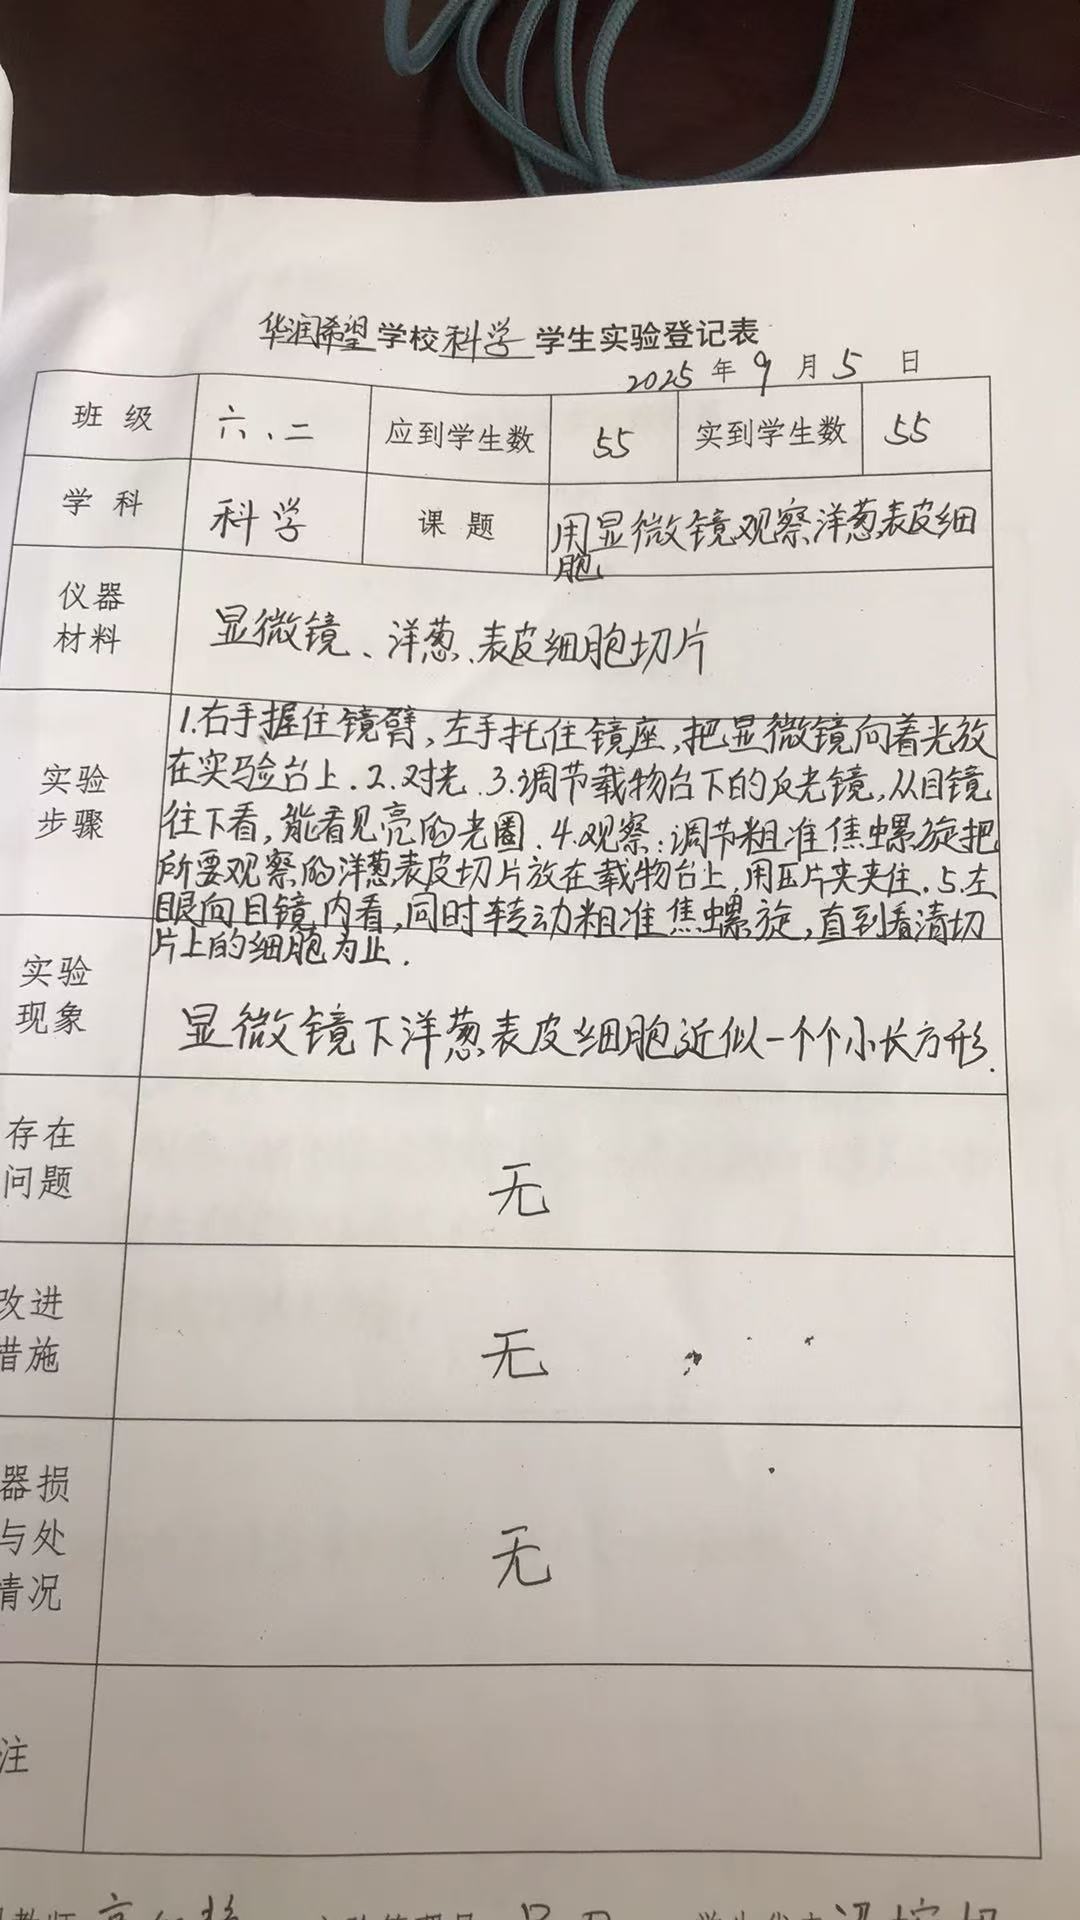 华润希望学校科学学生实验登记表
2025年9月5日
班级 六、二 应到学生数 55 实到学生数 55
学科 科学 课题 用显微镜观察洋葱表皮细
胞
仪器
材料
显微镜、洋葱、表皮细胞切片
实验
步骤
1.右手握住镜臂,左手托住镜座,把显微镜向着光放
在实验台上.2.对光.3.调节载物台下的反光镜,从目镜
往下看,能看见亮的光圈.4.观察:调节粗准焦螺旋把
所要观察的洋葱表皮切片放在载物台上,用压片夹夹住.5.左
眼向目镜内看,同时转动粗准焦螺旋,直到看清切
片上的细胞为止.
实验
现象
显微镜下洋葱表皮细胞近似一个个小长方形.
存在
问题
无
改进
措施
无
器损
与处
情况
无
注